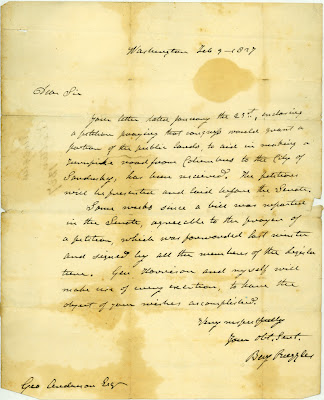 Washington Feb 9 - 1827
Dear Sir
Your letter dated January the 23rd, enclosing
a petition praying that congress would grant a
portion of the public lands to aid in making a
Turnpike road from Columbus to the City of
Sandusky, has been received. The petition
will be presented and laid before the Senate.
Some weeks since a bill was reported
in the Senate, agreeable to the prayer of
a petition, which was forwarded last winter
and signed by all the members of the legisla
ture. Genl Harrison and myself will
make use of every exertion, to have the
object of your wishes accomplished.
Very respectfully
Your Obt. Servt.
Benj Ruggles
Geo Anderson Esqr